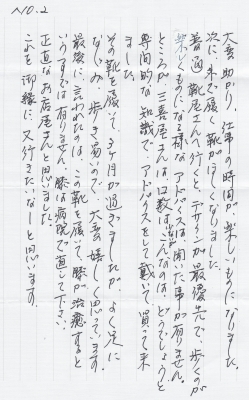 NO.2
大変助かり、仕事の時間が楽しいものになりました。
次に冬で履く靴がほしくなりました。
普通、靴屋さんへ行くと、デザインが最優先で、歩くのが
楽しくものになる様なアドバイスは、聞いた事が有りません。
ところが三喜屋さんは口数は、こんなのは、どうでしょうと
専門的な知識で、アドバイスをして戴いて買って来
ました。
その靴を履いて、3ヶ月が過ぎましたが、よく足に
なじみ、歩き易ので、大変嬉しく思っています。
最後に、言われたのは、この靴を履いて、膝が、治癒すると
いう事では有りません、膝は病院で直して下さい。
正直なお店屋さんと思いました。
これを御縁に、又行きたいなーと思います